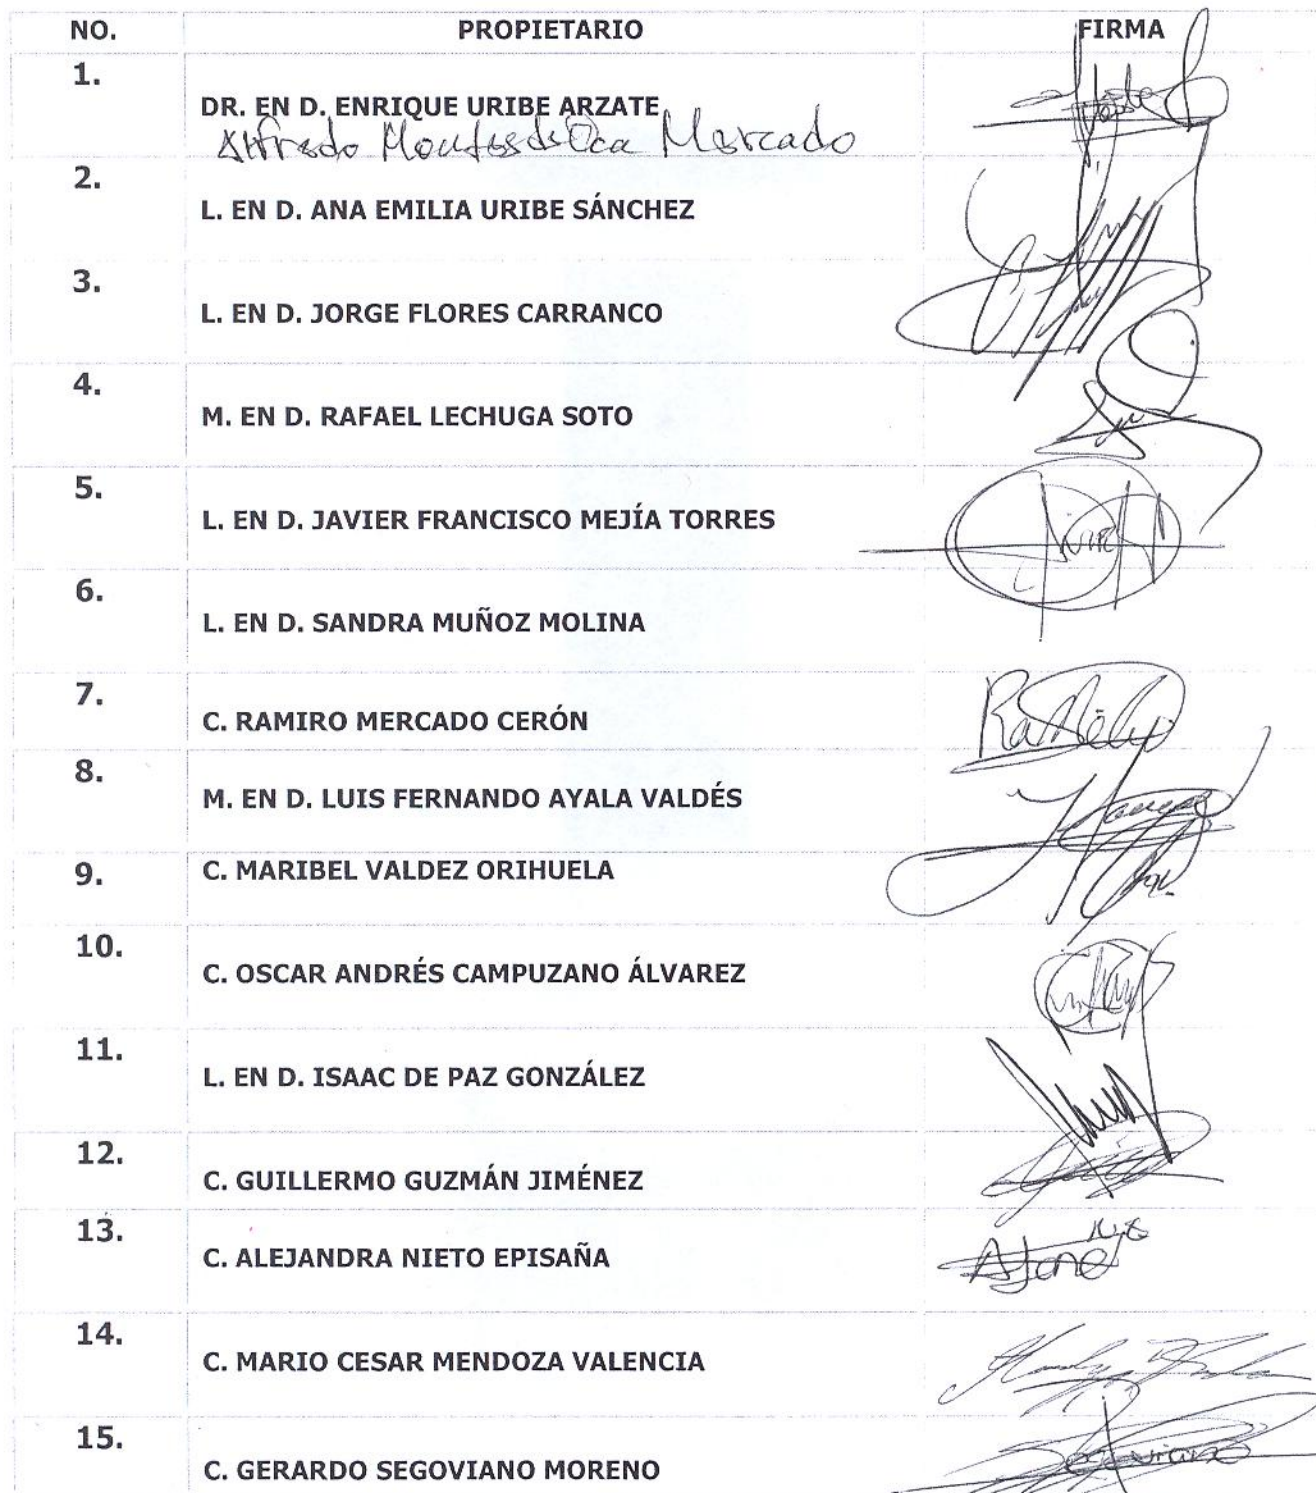 NO. PROPIETARIO FIRMA
1.
DR. EN D. ENRIQUE URIBE ARZATE
Alfredo Montes de Oca Mercado
2.
L. EN D. ANA EMILIA URIBE SÁNCHEZ
3.
L. EN D. JORGE FLORES CARRANCO
4.
M. EN D. RAFAEL LECHUGA SOTO
5.
L. EN D. JAVIER FRANCISCO MEJÍA TORRES
6.
L. EN D. SANDRA MUÑOZ MOLINA
7.
C. RAMIRO MERCADO CERÓN
8.
M. EN D. LUIS FERNANDO AYALA VALDÉS
9. C. MARIBEL VALDEZ ORIHUELA
10.
C. OSCAR ANDRÉS CAMPUZANO ÁLVAREZ
11.
L. EN D. ISAAC DE PAZ GONZÁLEZ
12.
C. GUILLERMO GUZMÁN JIMÉNEZ
13.
C. ALEJANDRA NIETO EPISAÑA
14.
C. MARIO CESAR MENDOZA VALENCIA
15.
C. GERARDO SEGOVIANO MORENO